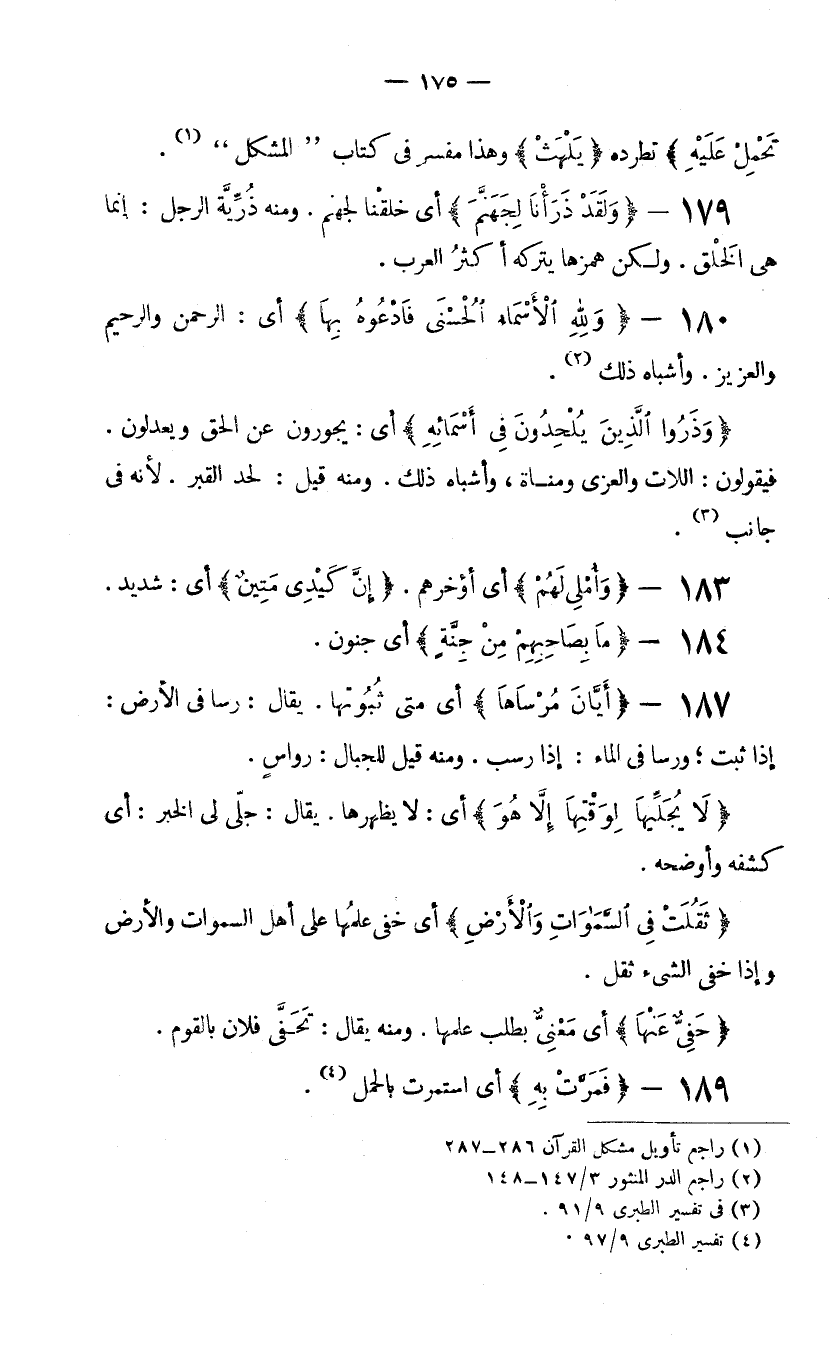 — ١٧٥ —
تَحْمِلْ عَلَيْهِ ﴾ تطرده ﴿ يَلْهَثْ ﴾ وهذا مفسر فى كتاب ” المشكل “ (١) .
١٧٩ — ﴿ وَلَقَدْ ذَرَأْنَا لِجَهَنَّمَ ﴾ أى خلقْنا لجهنم . ومنه ذُرِّيَّة الرجل : إنما
هى الخلْق . ولكن همزها يتركه أكثرُ العرب .
١٨٠ — ﴿ وَلِلهِ ٱلْأَسْمَاءُ ٱلْحُسْنَى فَادْعُوهُ بِهَا ﴾ أى : الرحمن والرحيم
والعزيز . وأشباه ذلك (٢) .
﴿ وَذَرُوا ٱلَّذِينَ يُلْحِدُونَ فِى أَسْمَائِهِ ﴾ أى : يجورون عن الحق ويعدلون .
فيقولون : اللات والعزى ومناة ، وأشباه ذلك . ومنه قيل : لحد القبر . لأنه فى
جانب (٣) .
١٨٣ — ﴿ وَأُمْلِى لَهُمْ ﴾ أى أؤخرهم . ﴿ إِنَّ كَيْدِى مَتِينٌ ﴾ أى : شديد .
١٨٤ — ﴿ مَا بِصَاحِبِهِمْ مِنْ جِنَّةٍ ﴾ أى جنون .
١٨٧ — ﴿ أَيَّانَ مُرْسَاهَا ﴾ أى متى ثُبُوتها . يقال : رسا فى الأرض :
إذا ثبت ؛ ورسا فى الماء : إذا رسب . ومنه قيل للجبال : رواسٍ .
﴿ لَا يُجَلِّيهَا لِوَقْتِهَا إِلَّا هُوَ ﴾ أى : لا يظهرها . يقال : جلّى لى الخبر : أى
كشفه وأوضحه .
﴿ ثَقُلَتْ فِى ٱلسَّمَوَاتِ وَٱلْأَرْضِ ﴾ أى خفى علمُها على أهل السموات والأرض
وإذا خفى الشىء ثقل .
﴿ حَفِىٌّ عَنْهَا ﴾ أى مَعْنِىٌّ بطلب علمها . ومنه يقال : تَحَفَّى فلان بالقوم .
١٨٩ — ﴿ فَمَرَّتْ بِهِ ﴾ أى استمرت بالحمل (٤) .
(١) راجع تأويل مشكل القرآن ٢٨٦–٢٨٧
(٢) راجع الدر المنثور ٣/١٤٧–١٤٨
(٣) فى تفسير الطبرى ٩/٩١ .
(٤) تفسير الطبرى ٩/٩٧ .